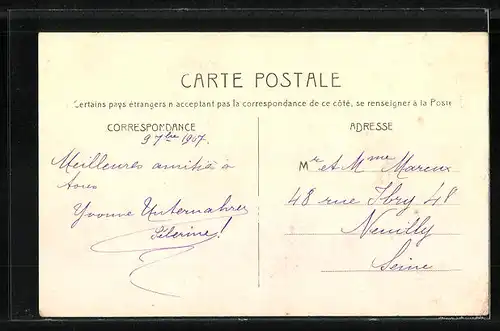 CARTE POSTALE
Certains pays étrangers n acceptant pas la correspondance de ce côté, se renseigner à la Poste
CORRESPONDANCE
9 7bre 1907.
Meilleures amitiés à
tous
Yvonne
Pélerine!
ADRESSE
Mr et Mme Mareux
48 rue Ibry 48
Neuilly
Seine